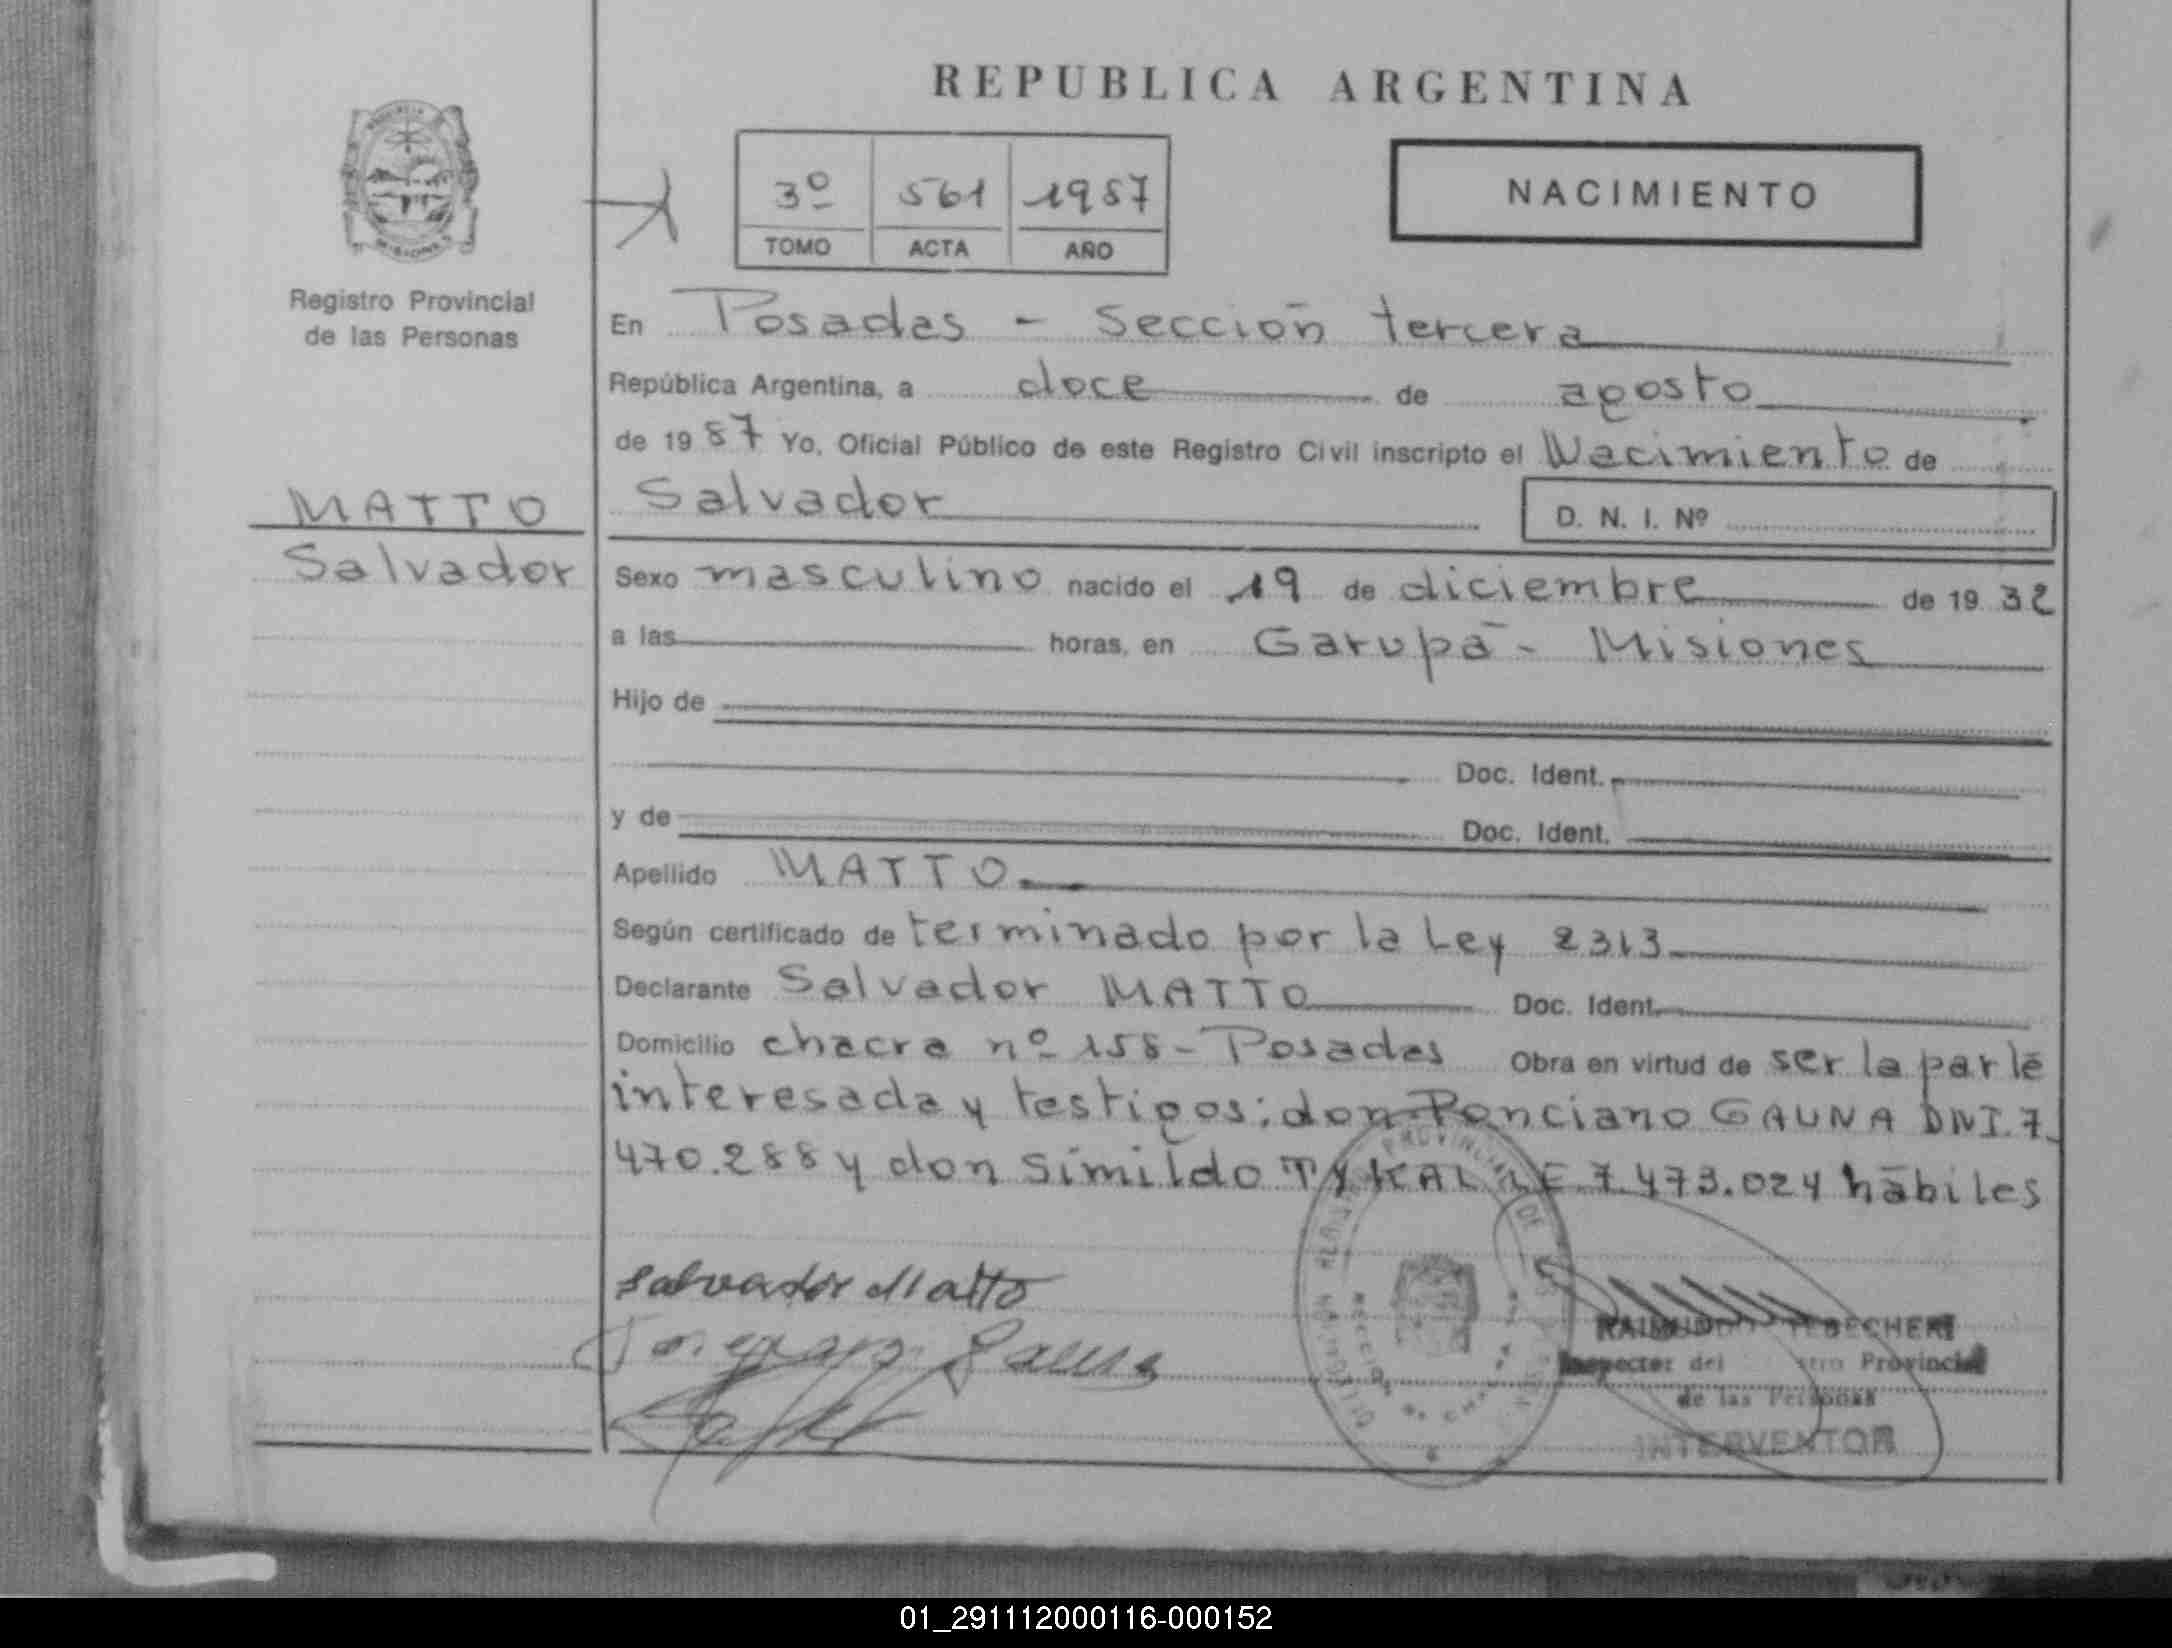 REPUBLICA ARGENTINA
3º 561 1987
TOMO ACTA AÑO
NACIMIENTO
Registro Provincial
de las Personas
En Posadas - Sección tercera
República Argentina, a doce de agosto
de 1987 Yo, Oficial Público de este Registro Civil inscripto el Nacimiento de
MATTO
Salvador
Salvador
D. N. I. Nº
Sexo masculino nacido el 19 de diciembre de 1932
a las horas, en Garupá - Misiones
Hijo de
Doc. Ident.
y de Doc. Ident.
Apellido MATTO
Según certificado de terminado por la Ley 2313
Declarante Salvador MATTO Doc. Ident.
Domicilio chacra nº 158 - Posadas Obra en virtud de ser la parte
interesada y testigos: don Ponciano GAUNA DNI. 7.
470.288 y don Simildo TYKAL LE. 7.473.024 hábiles
Salvador Matto
Gauna
RAIMUNDO TEBECHERI
Inspector del Provincial
de las Personas
INTERVENTOR
01_291112000116-000152